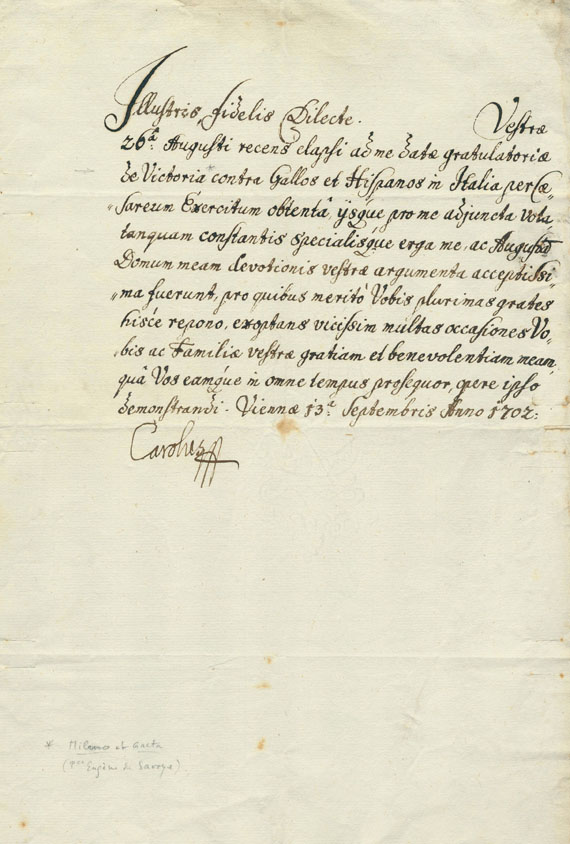 Illustris, fidelis Dilecte. Vestræ
26ª: Augusti recens elapsi ad me datæ gratulatoriæ
de Victoria contra Gallos et Hispanos in Italia per Cæ„
„sareum Exercitum obtentâ, ijsque pro me adjuncta Vota
tanquam constantis specialisque erga me, ac Augustā
Domum meam devotionis vestræ argumenta acceptissi„
„ma fuerunt, pro quibus meritò Vobis plurimas grates
hisce repono, exoptans vicissim multas occasiones Vo„
„bis ac Familiæ vestræ gratiam et benevolentiam meam,
quâ Vos eamque in omne tempus prosequor, opere ipso
demonstrandi. Viennæ 13ª Septembris Anno 1702:
Carolus
* Milano et Gaeta
(Pce Eugène de Savoye)